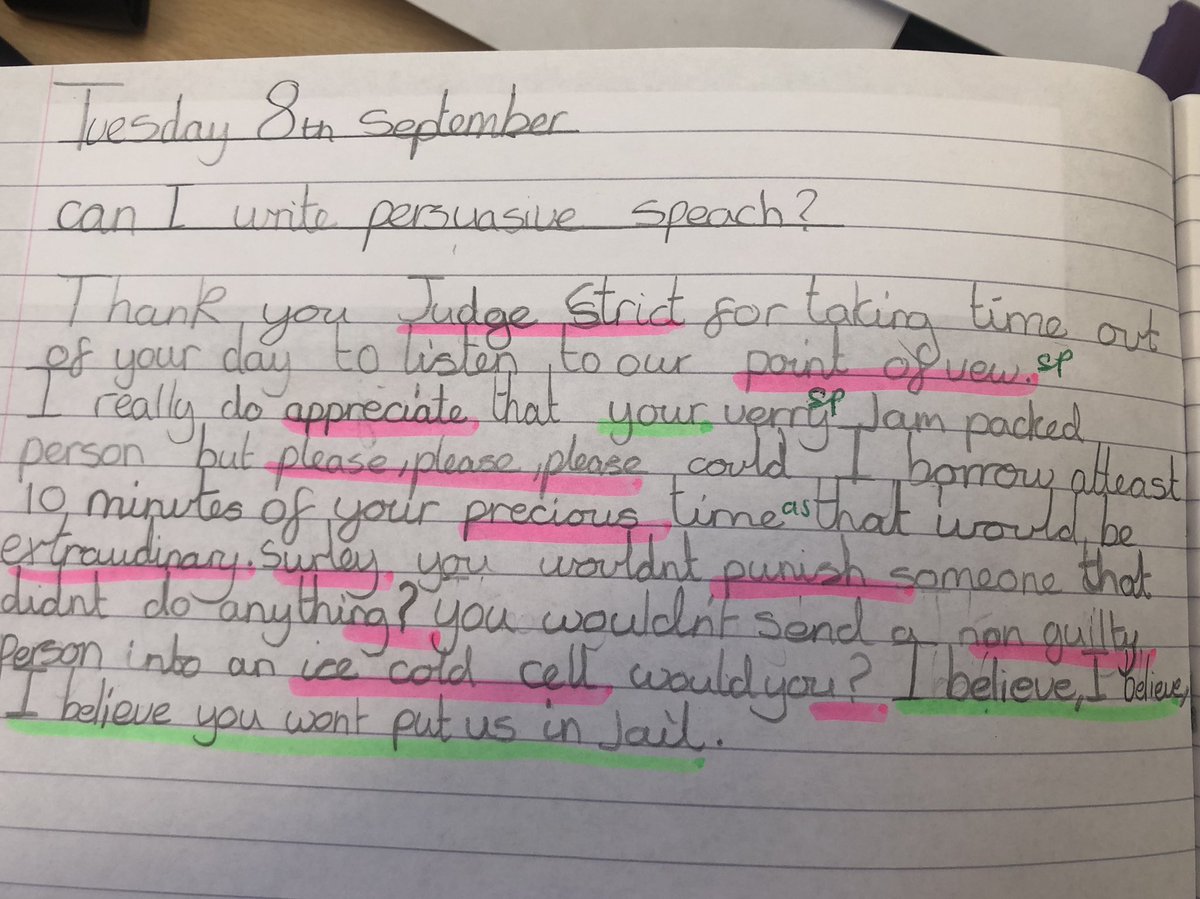 Tuesday 8th September
can I write persuasive speach?
Thank you Judge Strict for taking time out
of your day to listen to our point of vew. sp
I really do appreciate that your verry sp Jam packed
person but please, please, please could I borrow atleast
10 minutes of your precious time as that would be
extraudinary. Surley you wouldnt punish someone that
didnt do anything? you wouldn't send a non guilty
Person into an ice cold cell would you? I believe, I believe,
I believe you wont put us in Jail.